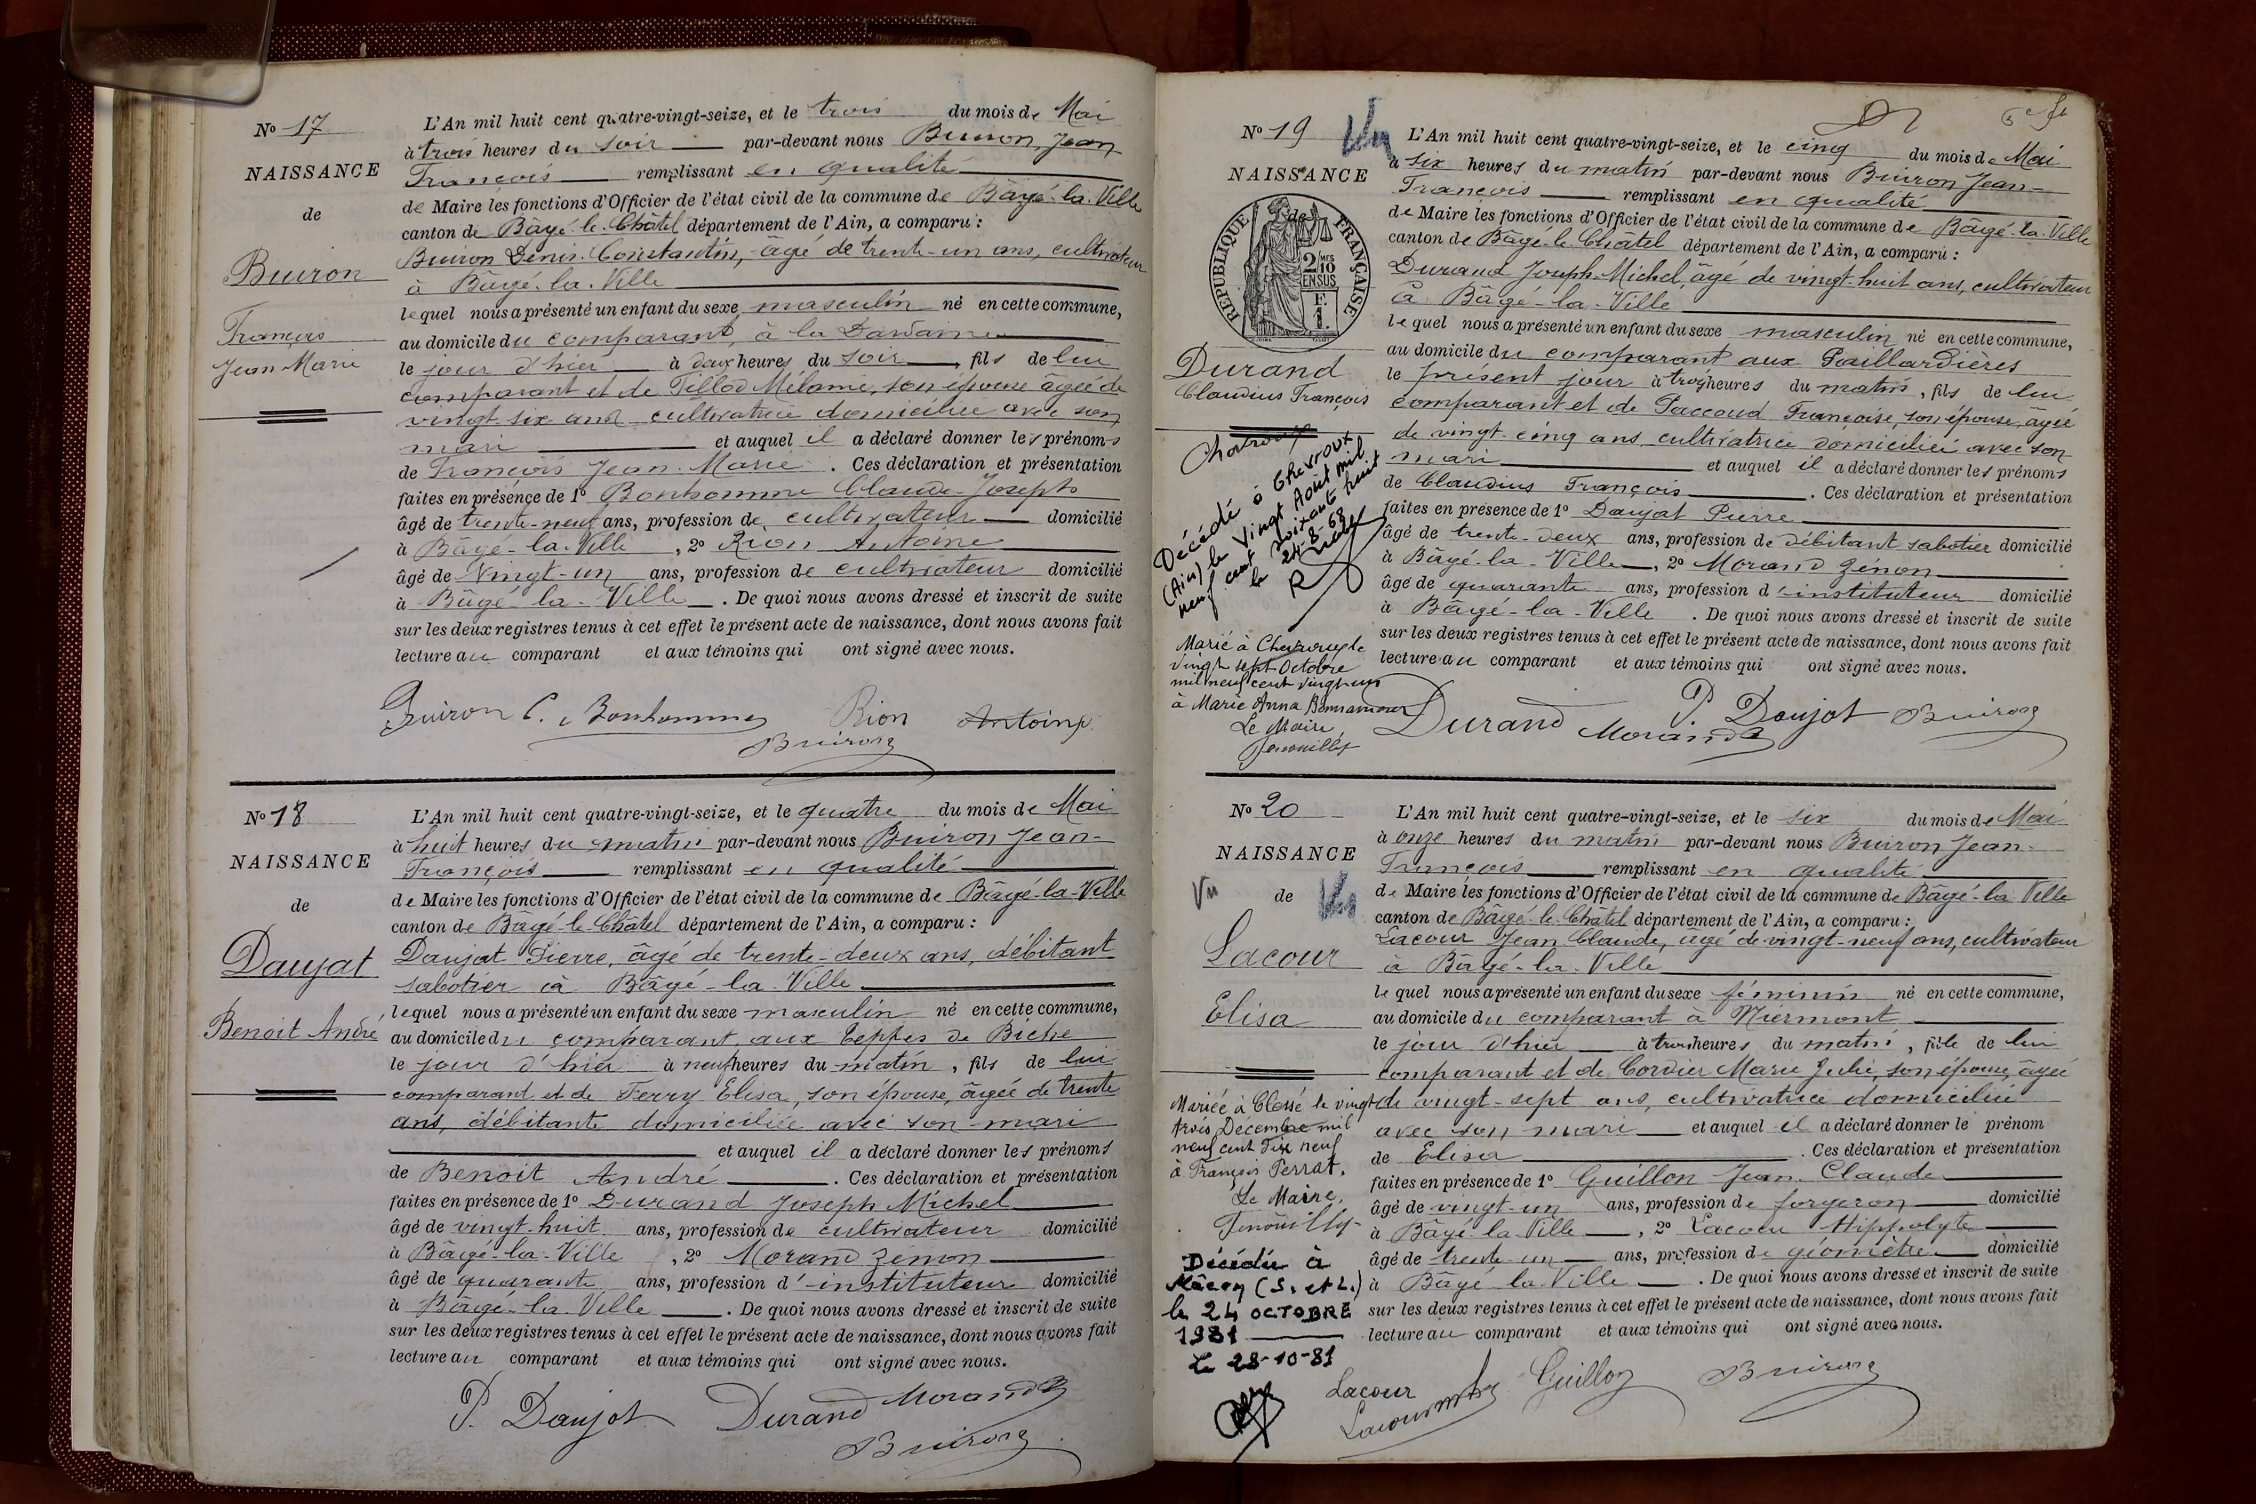 No 17
NAISSANCE
de
Buiron
François
Jean Marie
L'An mil huit cent quatre-vingt-seize, et le trois du mois de Mai
à trois heures du soir par-devant nous Buiron Jean
François remplissant en qualité
de Maire les fonctions d'Officier de l'état civil de la commune de Bâgé-la-Ville
canton de Bâgé-le-Châtel département de l'Ain, a comparu :
Buiron Denis Constantin, âgé de trente-un ans, cultivateur
à Bâgé-la-Ville
lequel nous a présenté un enfant du sexe masculin né en cette commune,
au domicile du comparant, à la
le jour d'hier à deux heures du soir, fils de lui
comparant et de Tillod Mélanie, son épouse âgée de
vingt six ans cultivatrice domiciliée avec son
mari et auquel il a déclaré donner les prénoms
de François Jean-Marie. Ces déclaration et présentation
faites en présence de 1o Bonhomme Claude-Joseph
âgé de trente-neuf ans, profession de cultivateur domicilié
à Bâgé-la-Ville, 2o Rion Antoine
âgé de vingt-un ans, profession de cultivateur domicilié
à Bâgé-la-Ville. De quoi nous avons dressé et inscrit de suite
sur les deux registres tenus à cet effet le présent acte de naissance, dont nous avons fait
lecture au comparant et aux témoins qui ont signé avec nous.
Buiron C. Bonhomme Rion Antoine
Buiron
No 18
NAISSANCE
de
Daujat
Benoit André
L'An mil huit cent quatre-vingt-seize, et le quatre du mois de Mai
à huit heures du matin par-devant nous Buiron Jean-
François remplissant en qualité
de Maire les fonctions d'Officier de l'état civil de la commune de Bâgé-la-Ville
canton de Bâgé-le-Châtel département de l'Ain, a comparu :
Daujat Pierre, âgé de trente-deux ans, débitant
sabotier à Bâgé-la-Ville
lequel nous a présenté un enfant du sexe masculin né en cette commune,
au domicile du comparant, aux Teppes de Biche
le jour d'hier à neuf heures du matin, fils de lui
comparant et de Ferry Elisa, son épouse, âgée de trente
ans, débitante domiciliée avec son mari
et auquel il a déclaré donner les prénoms
de Benoit André. Ces déclaration et présentation
faites en présence de 1o Durand Joseph Michel
âgé de vingt-huit ans, profession de cultivateur domicilié
à Bâgé-la-Ville, 2o Morand Zénon
âgé de quarante ans, profession d'instituteur domicilié
à Bâgé-la-Ville. De quoi nous avons dressé et inscrit de suite
sur les deux registres tenus à cet effet le présent acte de naissance, dont nous avons fait
lecture au comparant et aux témoins qui ont signé avec nous.
P. Daujat Durand Morand
Buiron
No 19
NAISSANCE
de
RÉPUBLIQUE FRANÇAISE
2/10 MES
EN SUS
F.
1.
Durand
Claudius François
Chevroux
Décédé à Chevroux
(Ain) le vingt Août mil
neuf cent soixante huit
le 24-8-68
Marié à Chevroux le
vingt sept Octobre
mil neuf cent vingt un
à Marie Anna Bonnamour
Le Maire,
L'An mil huit cent quatre-vingt-seize, et le cinq du mois de Mai
à six heures du matin par-devant nous Buiron Jean-
François remplissant en qualité
de Maire les fonctions d'Officier de l'état civil de la commune de Bâgé-la-Ville
canton de Bâgé-le-Châtel département de l'Ain, a comparu :
Durand Joseph-Michel, âgé de vingt-huit ans, cultivateur
à Bâgé-la-Ville
lequel nous a présenté un enfant du sexe masculin né en cette commune,
au domicile du comparant aux Paillardières
le présent jour à trois heures du matin, fils de lui
comparant et de Paccoud Françoise, son épouse, âgée
de vingt-cinq ans, cultivatrice domiciliée avec son
mari et auquel il a déclaré donner les prénoms
de Claudius François. Ces déclaration et présentation
faites en présence de 1o Daujat Pierre
âgé de trente-deux ans, profession de débitant sabotier domicilié
à Bâgé-la-Ville, 2o Morand Zénon
âgé de quarante ans, profession d'instituteur domicilié
à Bâgé-la-Ville. De quoi nous avons dressé et inscrit de suite
sur les deux registres tenus à cet effet le présent acte de naissance, dont nous avons fait
lecture au comparant et aux témoins qui ont signé avec nous.
Durand P. Daujat Buiron
Morand
No 20
NAISSANCE
Vu de Vu
Lacour
Elisa
Mariée à Clessé le vingt
trois Décembre mil
neuf cent dix neuf
à François Perrat.
Le Maire,
Décédée à
Mâcon (S. et L.)
le 24 OCTOBRE
1981
Le 28-10-81
L'An mil huit cent quatre-vingt-seize, et le six du mois de Mai
à onze heures du matin par-devant nous Buiron Jean-
François remplissant en qualité
de Maire les fonctions d'Officier de l'état civil de la commune de Bâgé-la Ville
canton de Bâgé-le-Châtel département de l'Ain, a comparu :
Lacour Jean Claude, âgé de vingt-neuf ans, cultivateur
à Bâgé-la-Ville
lequel nous a présenté un enfant du sexe féminin né en cette commune,
au domicile du comparant à Niermont
le jour d'hier à trois heures du matin, fille de lui
comparant et de Cordier Marie Julie, son épouse, âgée
de vingt-sept ans, cultivatrice domiciliée
avec son mari et auquel il a déclaré donner le prénom
de Elisa. Ces déclaration et présentation
faites en présence de 1o Guillon Jean-Claude
âgé de vingt-un ans, profession de forgeron domicilié
à Bâgé-la-Ville, 2o Lacour Hippolyte
âgé de trente-un ans, profession de géomètre domicilié
à Bâgé-la-Ville. De quoi nous avons dressé et inscrit de suite
sur les deux registres tenus à cet effet le présent acte de naissance, dont nous avons fait
lecture au comparant et aux témoins qui ont signé avec nous.
Lacour Guillon Buiron
Lacour